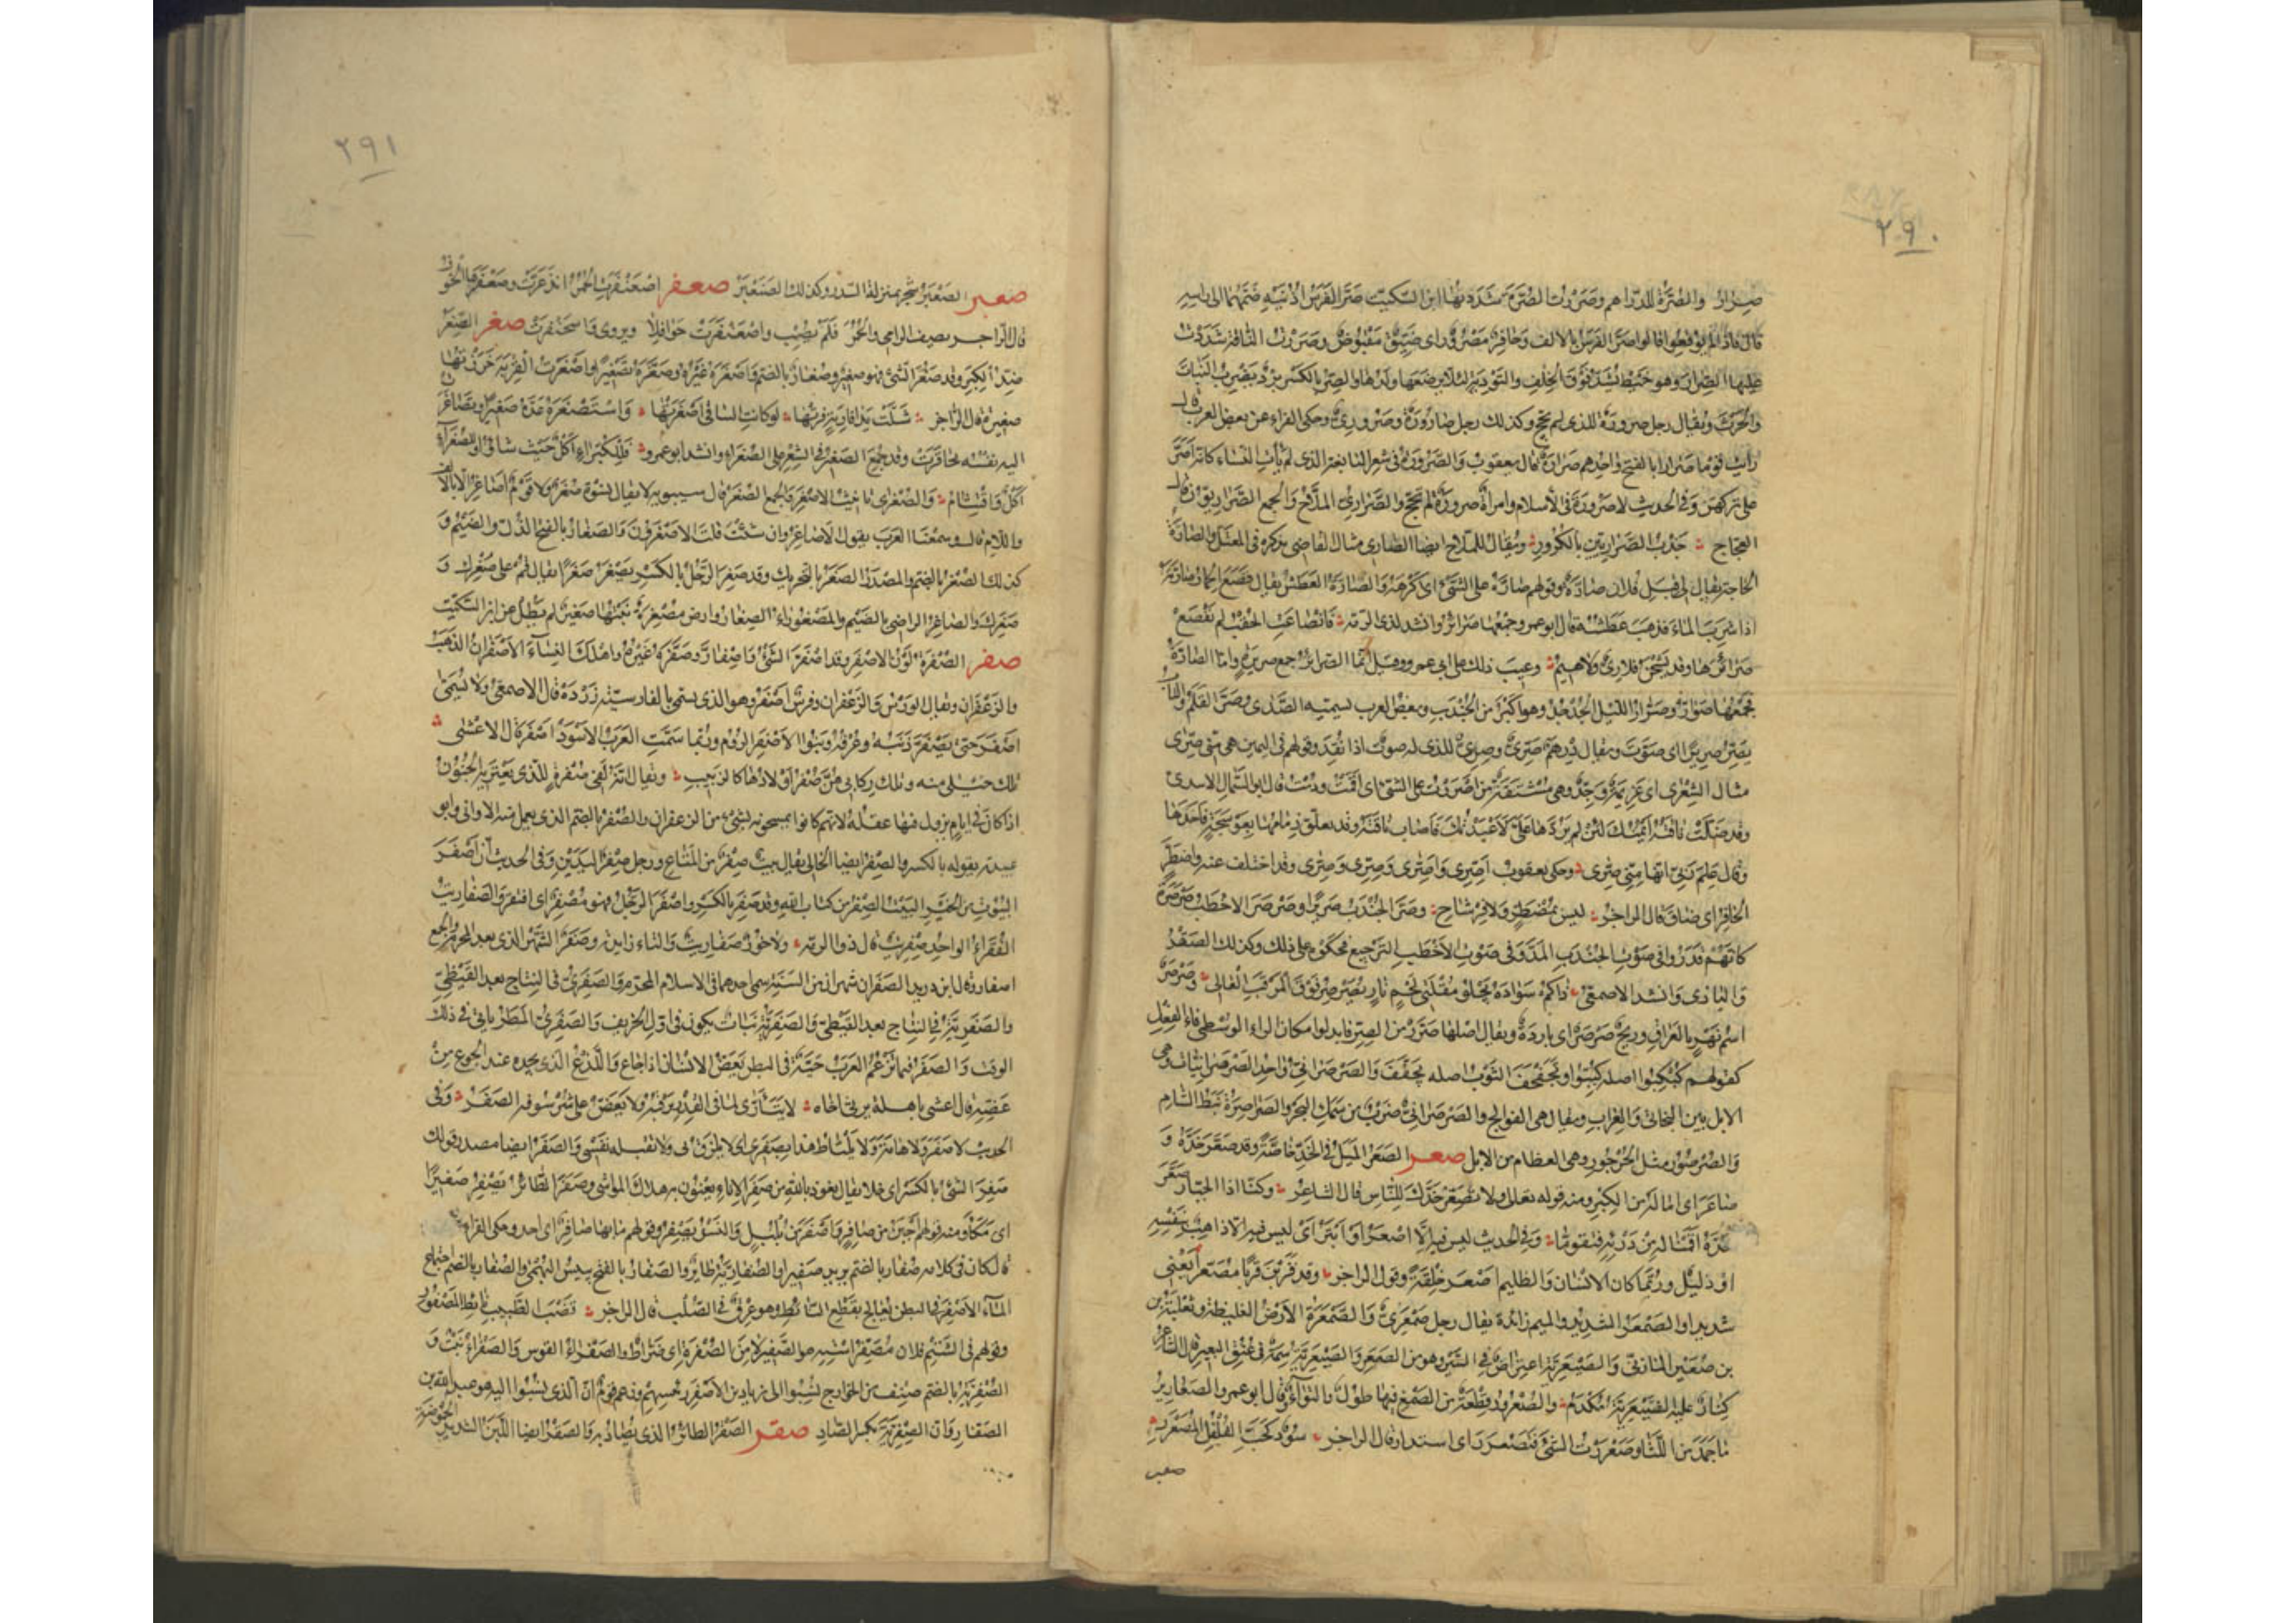 ٢٩٠
صِرارٌ والصُّرَّةُ للدراهم وصَرَرْتُ الصُّرَّةَ شَدَدتُها ابن السكيت صَرَّ الفَرَسُ أُذُنَيْهِ ضَمَّهُما الى راسه
قال فاذا لم يوقعوا قالوا اصَرَّ الفَرَسُ بالالف وحافِرٌ مَصْرُورٌ اى ضَيِّقٌ مَقْبُوضٌ وصَرَرْتُ الناقة شَدَدْتُ
عليها الصِرارَ وهو خَيْطٌ يُشَدُّ فَوْقَ الخِلْفِ والتَّوْدِيَةِ لئلا يرضَعَها ولدها والصِرُّ بالكسر بَرْدٌ يضرب النَّباتَ
والحَرْثَ ويقال رجل صرورةٌ للذى لم يحجّ وكذلك رجل صارُورَةٌ وصَرُورِىٌّ وحكى الفراء عن بعض العرب قال
رأيت قوما صَرارا بالفتح واحدهم صَرارَةٌ قال يعقوب والصَّرُورَةُ فى شعر النابغة الذى لم يأت النساء كانه اصَرَّ
على تركهنّ وفى الحديث لاصَرُورَةَ فى الاسلام وامرأة صرورةٌ لم تحجّ والصَّرارِىُّ الملّاح والجمع الصَّرارِيّون قال
العجاج جَذْبُ الصَّرارِيِّينَ بالكُرُورِ ويقال للملّاح ايضا الصارى مثال القاضى نذكره فى المعتلّ والصارّة
الحاجة يقال لى قِبَل فلان صارّةٌ وقولهم صارّه على الشئ اى أكرهه والصارّةُ العَطَش يقال قَصَعَ الحمار صارَّتَه
اذا شرب الماءَ فذهب عَطَشُه قال ابو عمرو وجَمْعُها صَرائِرُ وانشد لذى الرمة فانْصاعَتِ الحُقْبُ لم تَقْصَعْ
صَرائِرَها وقد نَشَحْنَ فلا رِىٌّ ولا هِيمُ وعيب ذلك على ابى عمرو وقيل انما الصَّرائِرُ جمع صريرةٍ واما الصارّةُ
فجمعها صَوارُّ وصَرّارُ الليل الجُدْجُدُ وهو اكبر من الجُنْدَبِ وبعض العرب يسمّيه الصَّدَى وصَرَّ القلم والباب
يَصِرُّ صريرًا اى صَوَّتَ ويقال دِرْهَمٌ صَرِّىٌّ وصِرِّىٌّ للذى له صوت اذا نُقِدَ وقولهم فى اليمين هى منّى صِرَّى
مثال الشِّعْرَى اى عَزِيمَةٌ وجِدٌّ وهى مُشْتَقَّةٌ من أَصْرَرْتُ على الشئ اى اقَمْتُ ودُمْتُ قال ابو السَّمّال الاسدى
وقد ضَلَّتْ ناقَتُهُ أَيْمُنُكَ لئن لم تَرُدَّها علىَّ لا عَبَدْتُكَ فاصاب ناقته وقد تعلّق زمامها بعَوْسَجَةٍ فاخذها
وقال عَلِمَ رَبِّى انها مِنّى صِرَّى وحكى يعقوب أَصِرِّى وأَصِرَّى وصِرِّى وصِرَّى وقد اختلف عنه واصْطَرَّ
الحافِرُ اى ضاق قال الراجز ليس بمُصْطَرٍّ ولا فِرْشاحِ وصَرَّ الجُنْدَبُ صَرِيرًا وصَرْصَرَ الاخْطَبُ صَرْصَرَةً
كأنّهم قَدَّرُوا فى صَوْتِ الجُنْدَبِ المَدَّ وفى صَوْتِ الاخْطَبِ التَّرْجِيعَ فحكَوْه على ذلك وكذلك الصَّقْرُ
والبازى وانشد الاصمعى ذاكُمْ سَوادَةُ يَجْلُو مُقْلَتَىْ لَحِمٍ بازٍ يُصَرْصِرُ فَوْقَ المَرْقَبِ العالى وصَرْصَرٌ
اسْمُ نَهْرٍ بالعراق وريحٌ صَرْصَرٌ اى باردةٌ ويقال اصلها صَرَّرٌ من الصِرِّ فابدلوا مكان الراء الوسطى فاء الفعل
كقولهم كُبْكِبُوا اصله كُبِّبُوا وتَجَفْجَفَ الثوب اصله تَجَفَّفَ والصَّرْصَرانِىُّ واحد الصَّرْصَرانِيّات وهى
الابل بين البَخاتِىّ والعِراب ويقال هى الفوالج والصَّرْصَرانِىُّ ضربٌ من سَمَكِ البحر والصَّراصِرَةُ نَبَطُ الشام
والصُّرْصُورُ مثل الجُرْجُور وهى العظام من الابل صعر الصَّعَرُ المَيَلُ فى الخَدِّ خاصّةً وقد صَعَّرَ خَدَّهُ و
صاعَرَ اى امالَهُ من الكِبر ومنه قوله تعالى ولا تُصَعِّرْ خَدَّكَ لِلنّاسِ قال الشاعر وكُنّا اذا الجَبّارُ صَعَّرَ
خَدَّهُ أَقَمْنا له مِنْ دَرْئِهِ فتَقَوَّما وفى الحديث ليس فيه الّا أَصْعَرُ او أَبْتَرُ اى ليس فيه الّا ذاهبٌ بنفسه
او ذليلٌ وربّما كان الانسان والظليم أَصْعَرَ خِلْقَةً وقول الراجز وقد قَرَبْنَ قَرَبًا مُصْعَرّا يعنى
شديدا والصَّمْعَرُ الشديد والميم زائدة يقال رجل صَمْعَرِىٌّ والصَّمْعَرَةُ الارضُ الغليظة وثعلبة بن
بن صُعَيْرٍ المازنىّ والصَّيْعَرِيَّةُ اعتراضٌ فى السَّيْر وهو من الصَّعَر والصَّيْعَرِيَّةُ سِمَةٌ فى عُنُقِ البعير قال الشاعر
كِنازٌ عليه الصَّيْعَرِيَّةُ مُكْدَمُ والصُّعْرُورُ قِطْعَةٌ من الصَّمْغ فيها طول والْتِواءٌ وقال ابو عمرو الصَّعارِيرُ
ما جَمَدَ من اللَّثا وصَعْرَرْتُ الشئ فتَصَعْرَرَ اى استدار قال الراجز سُودٌ كَحَبِّ الفُلْفُلِ المُصَعْرَرِ
صعبر
٢٩١
صعبر الصَّعْبَرُ شجر بمنزلة السِّدر وكذلك الصَّنَعْبَرُ صعفر اصْعَنْفَرَتِ الحُمُرُ ابْذَعَرَّتْ وصَعْفَرَها الخَوْفُ
قال الراجز يصف الرامى والحُمُرَ فَلَمْ يُصِبْ واصْعَنْفَرَتْ جَوافِلَا ويروى واسْحَنْفَرَتْ صغر الصِّغَرُ
ضدّ الكِبَر وقد صَغُرَ الشئ فهو صغير وصُغارٌ بالضم واصْغَرَهُ غَيْرُهُ وصَغَّرَهُ تَصْغِيرًا واصْغَرْتُ القِرْبَةَ خَرَزْتُها
صغيرةً قال الراجز شَلَّتْ يَدا فارِيَةٍ فَرَتْها لو كانَتِ السّاقِى أَصْغَرَتْها واسْتَصْغَرَهُ عَدَّهُ صَغِيرًا وتَصاغَرَتْ
اليه نَفْسُه تحاقَرَتْ وقد جُمِعَ الصَّغِيرُ فى الشعر على الصُّغَراءِ وانشد ابو عمرو فَلِلْكُبَراءِ أَكْلٌ حَيْثُ شاؤا ولِلصُّغَراءِ
أَكْلٌ واقْتِثامُ والصُّغْرَى تانيث الاصغر والجمع الصُّغَرُ قال سيبويه لا يقال نِسْوَةٌ صُغَرٌ ولا قَوْمٌ أَصاغِرُ الّا بالالف
واللام قال وسمعنا العرب يقول الاصاغِرُ وان شئت قلت الاصْغَرُونَ والصَّغارُ بالفتح الذُّلُّ والضَّيْمُ و
كذلك الصُّغْرُ بالضم والمصدر الصَّغَرُ بالتحريك وقد صَغِرَ الرَّجُلُ بالكسر يَصْغَرُ صَغَرًا يقال قُمْ على صُغْرِكَ و
صَغَرِكَ والصاغِرُ الراضى بالضَّيْم والمَصْغُوراءُ الصِغارُ وارض مُصْغِرَةٌ نَبْتُها صغير لم يَطُلْ عن ابن السكيت
صفر الصُّفْرَةُ لَوْنُ الاصْفَرِ وقد اصْفَرَّ الشئ واصْفارَّ وصَفَّرَهُ غَيْرُهُ واهْلَكَ النِّساءَ الاصْفَرانِ الذَّهَبُ
والزَّعْفَران ويقال الوَرْسُ والزَّعْفَران وفرس اصْفَرُ وهو الذى يسمى بالفارسيّة زَرْدَه قال الاصمعىّ ولا يُسَمَّى
اصْفَرَ حتى يَصْفَرَّ ذَنَبُهُ وعُرْفُهُ وبَنُو الاصْفَرِ الرُّوم وربّما سَمَّتِ العَرَبُ الاسْوَدَ اصْفَرَ قال الاعشى
تلك خَيْلِى منه وتلك رِكابى هُنَّ صُفْرٌ أَوْلادُها كالزَّبِيبِ ويقال انه لَفِى صُفْرَةٍ للذى يَعْتَرِيهِ الجُنُونُ
اذا كان فى ايام يزول فيها عقلُه لانهم كانوا يمسحونه بشئ من الزعفران والصُّفْرُ بالضم الذى يعمل منه الاوانى وابو
عبيدة يقوله بالكسر والصِّفْرُ ايضا الخالى يقال بيت صِفْرٌ من المتاع ورجل صِفْرُ اليَدَيْنِ وفى الحديث انّ أَصْفَرَ
البُيُوتِ من الخَيْرِ البَيْتُ الصِّفْرُ من كتاب الله وقد صَفِرَ بالكسر واصْفَرَ الرَّجُلُ فهو مُصْفِرٌ اى افتقر والصَّفارِيتُ
الفُقَراءُ الواحد صِفْرِيتٌ قال ذو الرمة ولا خُورٌ صَفارِيتُ والتاء زايدة وصَفَرٌ الشَّهْرُ الذى بعد المحرم والجمع
اصفار قال ابن دريد الصَّفَرانِ شهران من السَّنَة سمى احدهما فى الاسلام المحرّم والصَّفَرِىُّ فى النِّتاج بعد القَيْظِىّ
والصَّفَرِيَّةُ فى النتاج بعد القيظىّ والصَّفَرِيَّةُ نَباتٌ يكون فى اوّل الخريف والصَّفَرِىُّ المَطَرُ ياتى فى ذلك
الوقت والصَّفَرُ فيما تَزْعُمُ العَرَبُ حَيَّةٌ فى البطن تَعَضُّ الانسان اذا جاع واللَّذْعُ الذى يجده عند الجوع من
عَضِّهِ قال اعشى باهلة يرثى اخاه لا يَتَأَرَّى لِما فى القِدْرِ يَرْقُبُهُ ولا يَعَضُّ على شُرْسُوفِهِ الصَّفَرُ وفى
الحديث لا صَفَرَ ولا هامَةَ ولا يَلْتاطُ هذا بصَفَرِى اى لا يَلْزَقُ بى ولا تقبله نَفْسِى والصَّفَرُ ايضا مصدر قولك
صَفِرَ الشئ بالكسر اى خلا يقال نعوذ بالله من صَفَرِ الاناءِ يَعْنُون به هلاك المواشى وصَفَرَ الطائر يَصْفِرُ صَفِيرًا
اى مَكَا ومنه قولهم اجْبَنُ من صافِرٍ واصْفَرُ من بُلْبُلٍ والنَّسْرُ يَصْفِرُ وقولهم ما بها صافِرٌ اى احد وحكى الفراء
قال كان فى كلامه صُفارٌ بالضم يريد صفيرا والصُّفارِيَّةُ طائِرٌ والصَّفارُ بالفتح يبيس البُهْمَى والصُّفارُ بالضم اجتماع
الماء الاصْفَرِ فى البطن يُعالَجُ بقَطْعِ النائط وهو عِرْقٌ فى الصُّلْبِ قال الراجز قَضْبَ الطَّبِيبِ نائِطَ المَصْفُورْ
وقولهم فى الشَّتْم فلان مُصَفَّرُ اسْتِهِ هو من الصَّفِيرِ لا من الصُّفْرَةِ اى ضَرّاطٌ والصَّفْراءُ القوس والصَّفْراءُ نَبْتٌ و
الصُّفْرِيَّةُ بالضم صِنْفٌ من الخوارج نُسِبُوا الى زياد بن الاصْفَر رئيسهم وزعم قومٌ انّ الذى نُسِبُوا اليه هو عبد الله بن
الصَّفّار وانّ الصِّفْرِيَّةَ بكسر الصّادِ صقر الصَّقْرُ الطائر الذى يُصْطادُ به والصَّقْرُ ايضا اللَّبَنُ الشديد الحُمُوضَةِ